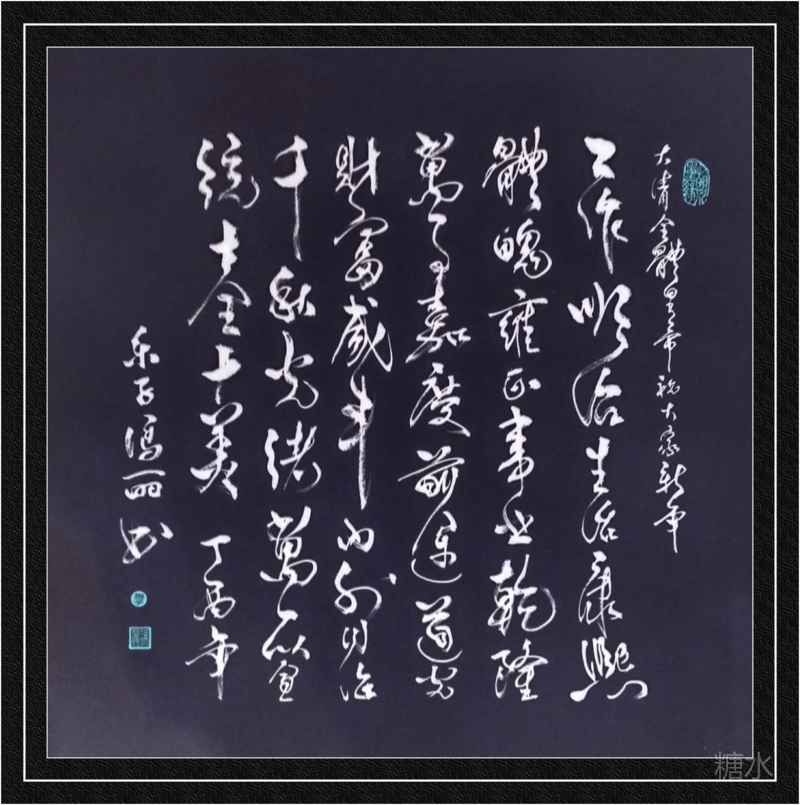 大清全體皇帝祝大家新年
工作順治生活康熙
體魄雍正事业乾隆
萬事嘉慶前途道光
財富咸丰内外同治
千秋光绪萬众宣
統十全十美 丁酉年
乐 馮丽书
糖水